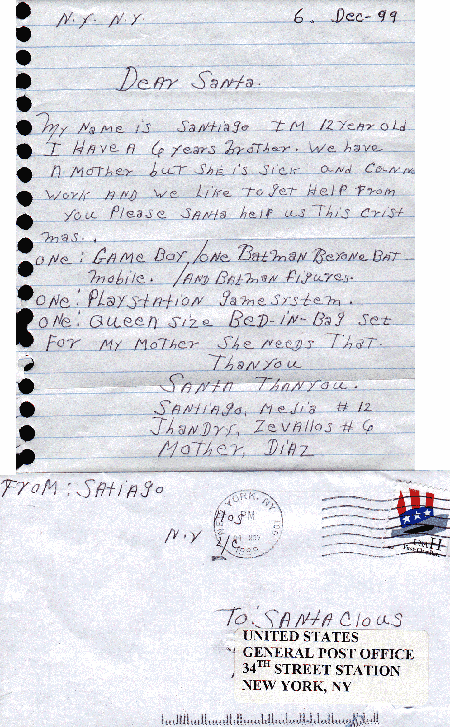 N.Y. N.Y. 6. Dec-99
Dear Santa.
My Name is Santiago IM 12 Year old
I HAVE A 6 years Brother. We have
A Mother but She is Sick and Cann
work AND we Like To get Help From
you Please SANta help us This Crist
mas..
one: GAME Boy, /one Batman Beyone BAT
mobile. /AND BATman Figures.
one: Playstation game system.
one: Queen Size BED-IN-BAg set
For my Mother She Needs That.
Thanyou
SANTA ThANyou.
SANTiAgo, Mejia # 12
Jhandry, Zevallos # 6
Mother, DiAZ
From: SAtiAgo
N.Y
YORK, NY
PM
To: SANTA Clous
UNITED STATES
GENERAL POST OFFICE
34TH STREET STATION
NEW YORK, NY
H